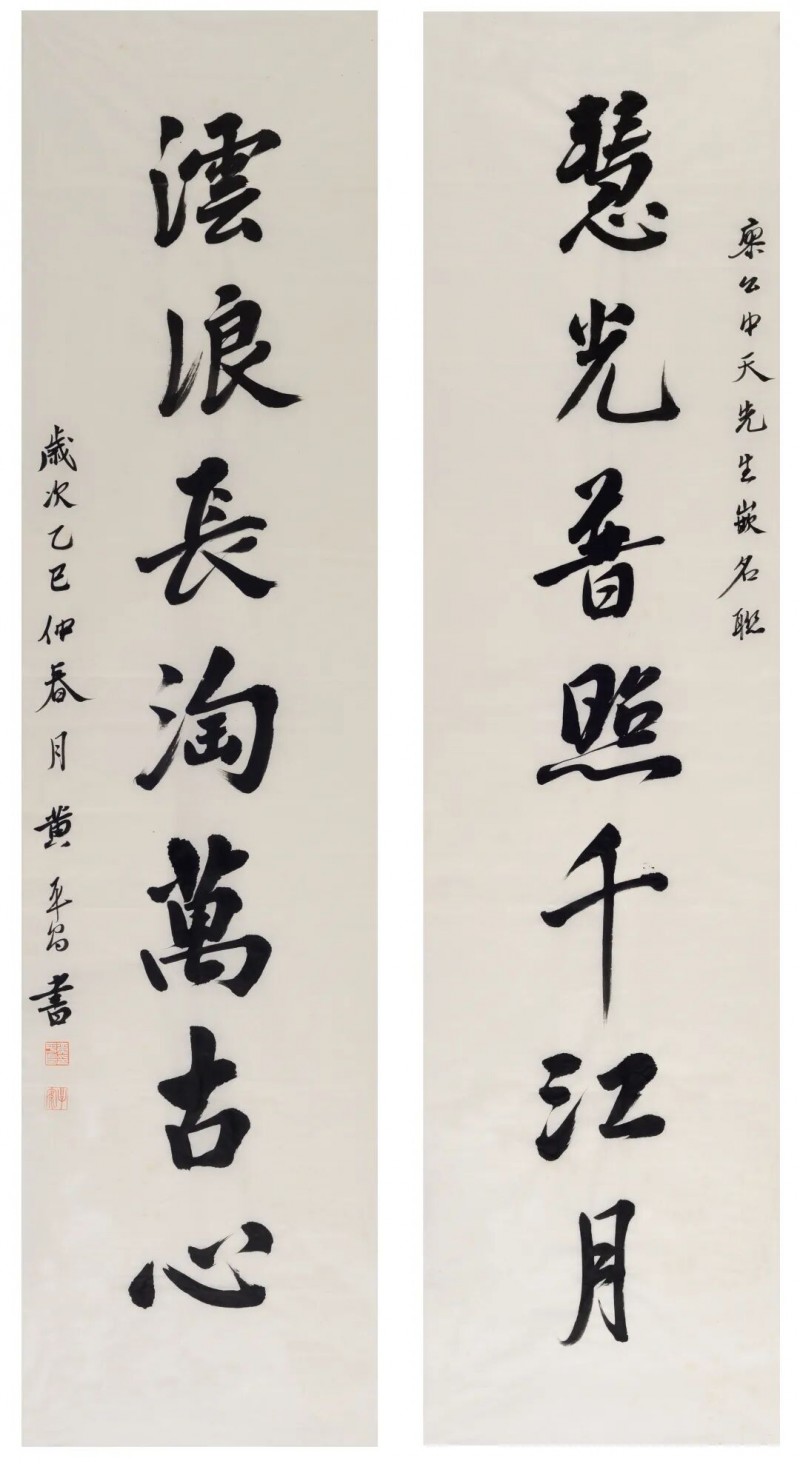 公中天先生嵌名聯
慧光普照千江月
澐浪長淘萬古心
歲次乙巳仲春月黃書